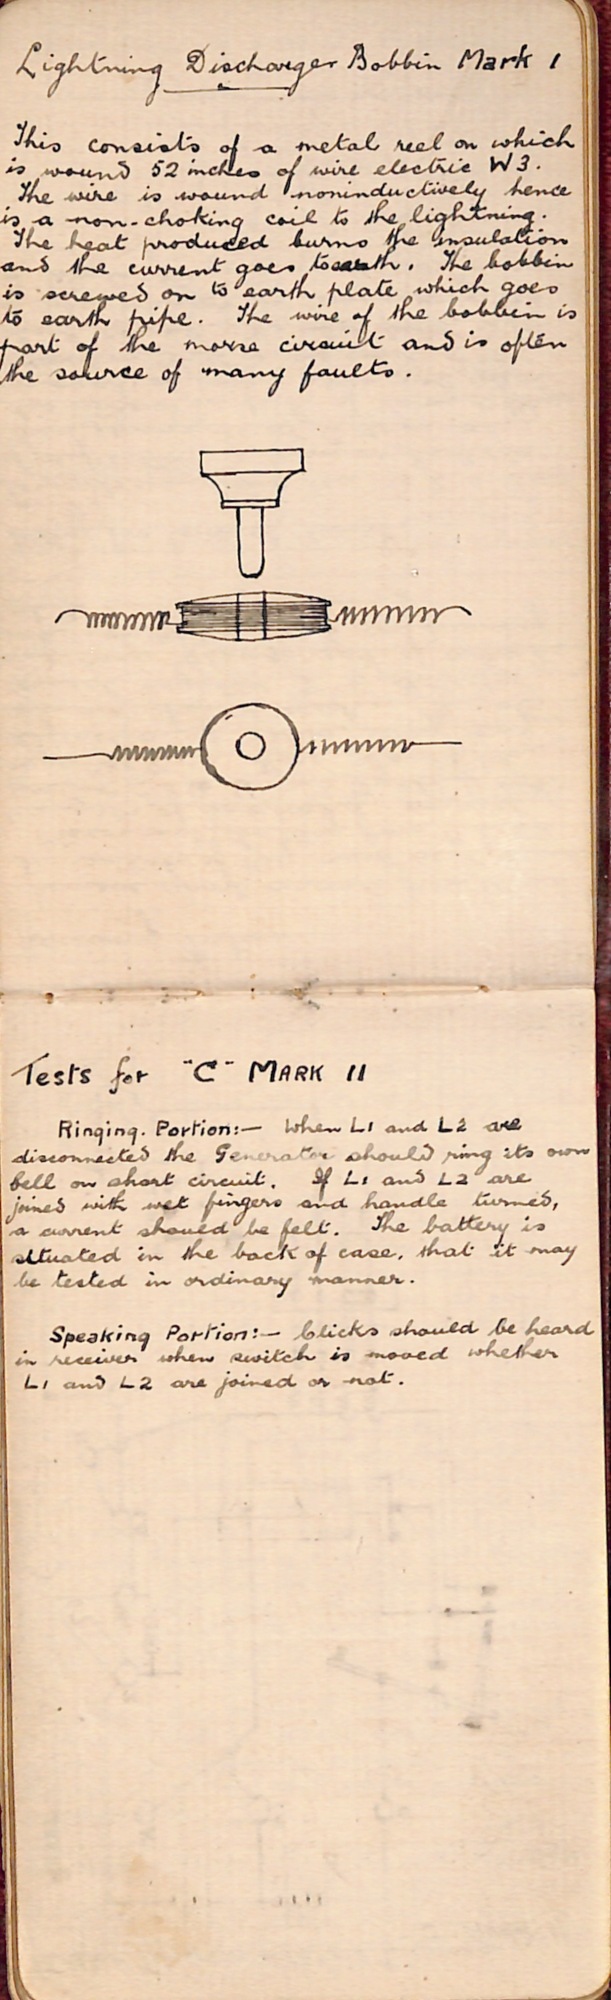 Lightning Discharger Bobbin Mark I
This consists of a metal reel on which
is wound 52 inches of wire electric W3.
The wire is wound noninductively hence
is a non-choking coil to the lightning.
The heat produced burns the insulation
and the current goes to earth. The bobbin
is screwed on to earth plate which goes
to earth pipe. The wire of the bobbin is
part of the morse circuit and is often
the source of many faults.
Tests for "C" MARK II
Ringing. Portion:— When L1 and L2 are
disconnected the Generator should ring its own
bell on short circuit. If L1 and L2 are
joined with wet fingers and handle turned,
a current should be felt. The battery is
situated in the back of case, that it may
be tested in ordinary manner.
Speaking Portion:— Clicks should be heard
in receiver when switch is moved whether
L1 and L2 are joined or not.